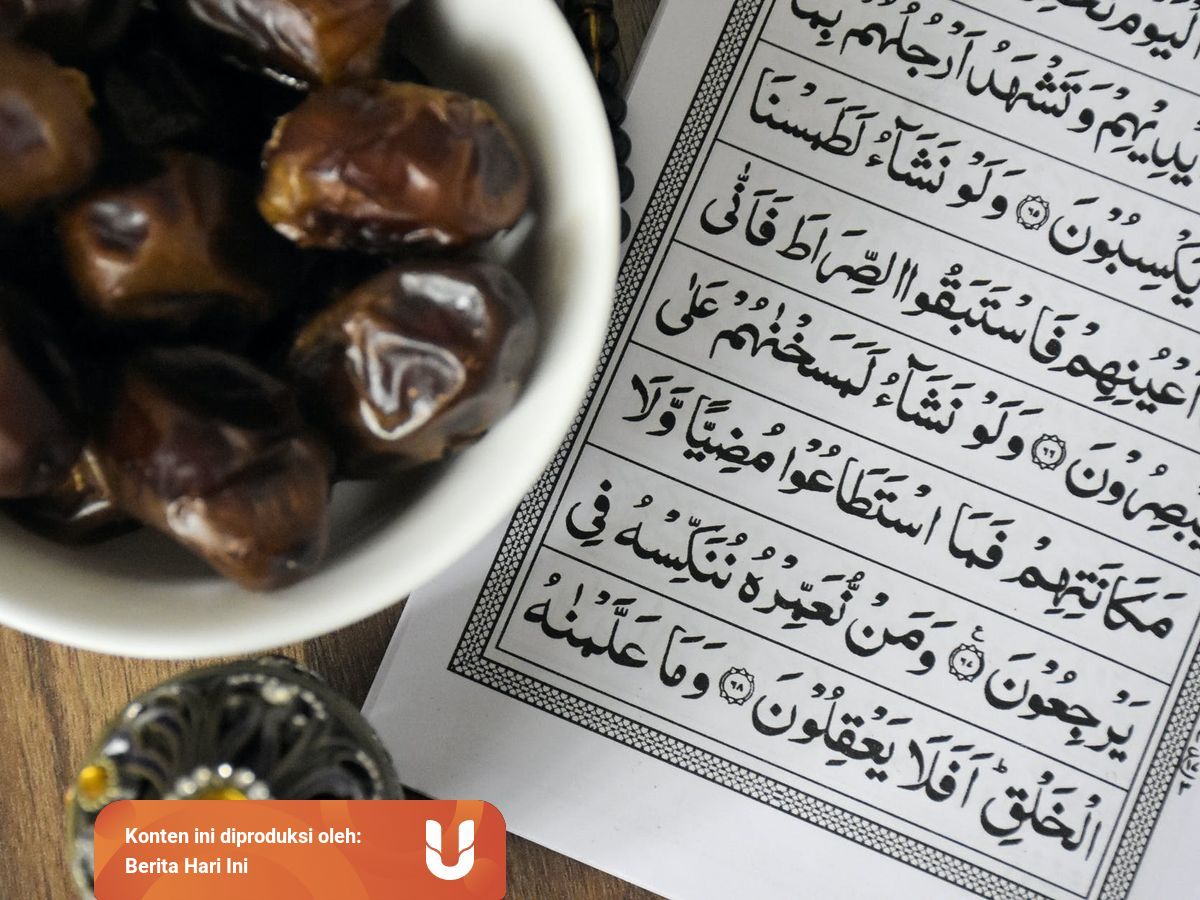 اَلْيَوْمَ
اَيْدِيْهِمْ وَتَشْهَدُ اَرْجُلُهُمْ بِمَا
يَكْسِبُوْنَ ۝٦٥ وَلَوْ نَشَآءُ لَطَمَسْنَا
اَعْيُنِهِمْ فَاسْتَبَقُوا الصِّرَاطَ فَاَنّٰى
يُبْصِرُوْنَ ۝٦٦ وَلَوْ نَشَآءُ لَمَسَخْنٰهُمْ عَلٰى
مَكَانَتِهِمْ فَمَا اسْتَطَاعُوْا مُضِيًّا وَّلَا
يَرْجِعُوْنَ ۝٦٧ وَمَنْ نُّعَمِّرْهُ نُنَكِّسْهُ فِى
الْخَلْقِ ؕ اَفَلَا يَعْقِلُوْنَ ۝٦٨ وَمَا عَلَّمْنٰهُ
Konten ini diproduksi oleh:
Berita Hari Ini